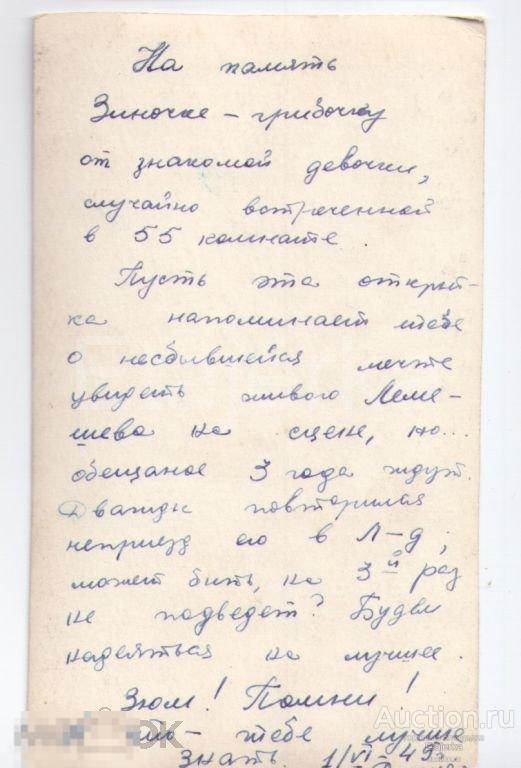 На память
Зиночке - грибочку
от знакомой девочки,
случайно встреченной
в 55 комнате.
Пусть эта открыт-
ка напоминает тебе
о несбывшейся мечте
увидеть живого Леме-
шева на сцене, но...
обещаное 3 года ждут.
Дважды повторился
неприезд его в Л-д;
может быть, на 3й раз
не подведет? Будем
надеяться на лучшее.
Зюм! Помни!
- тебе лучше
знать. 1/VI-49г
Auction.ru